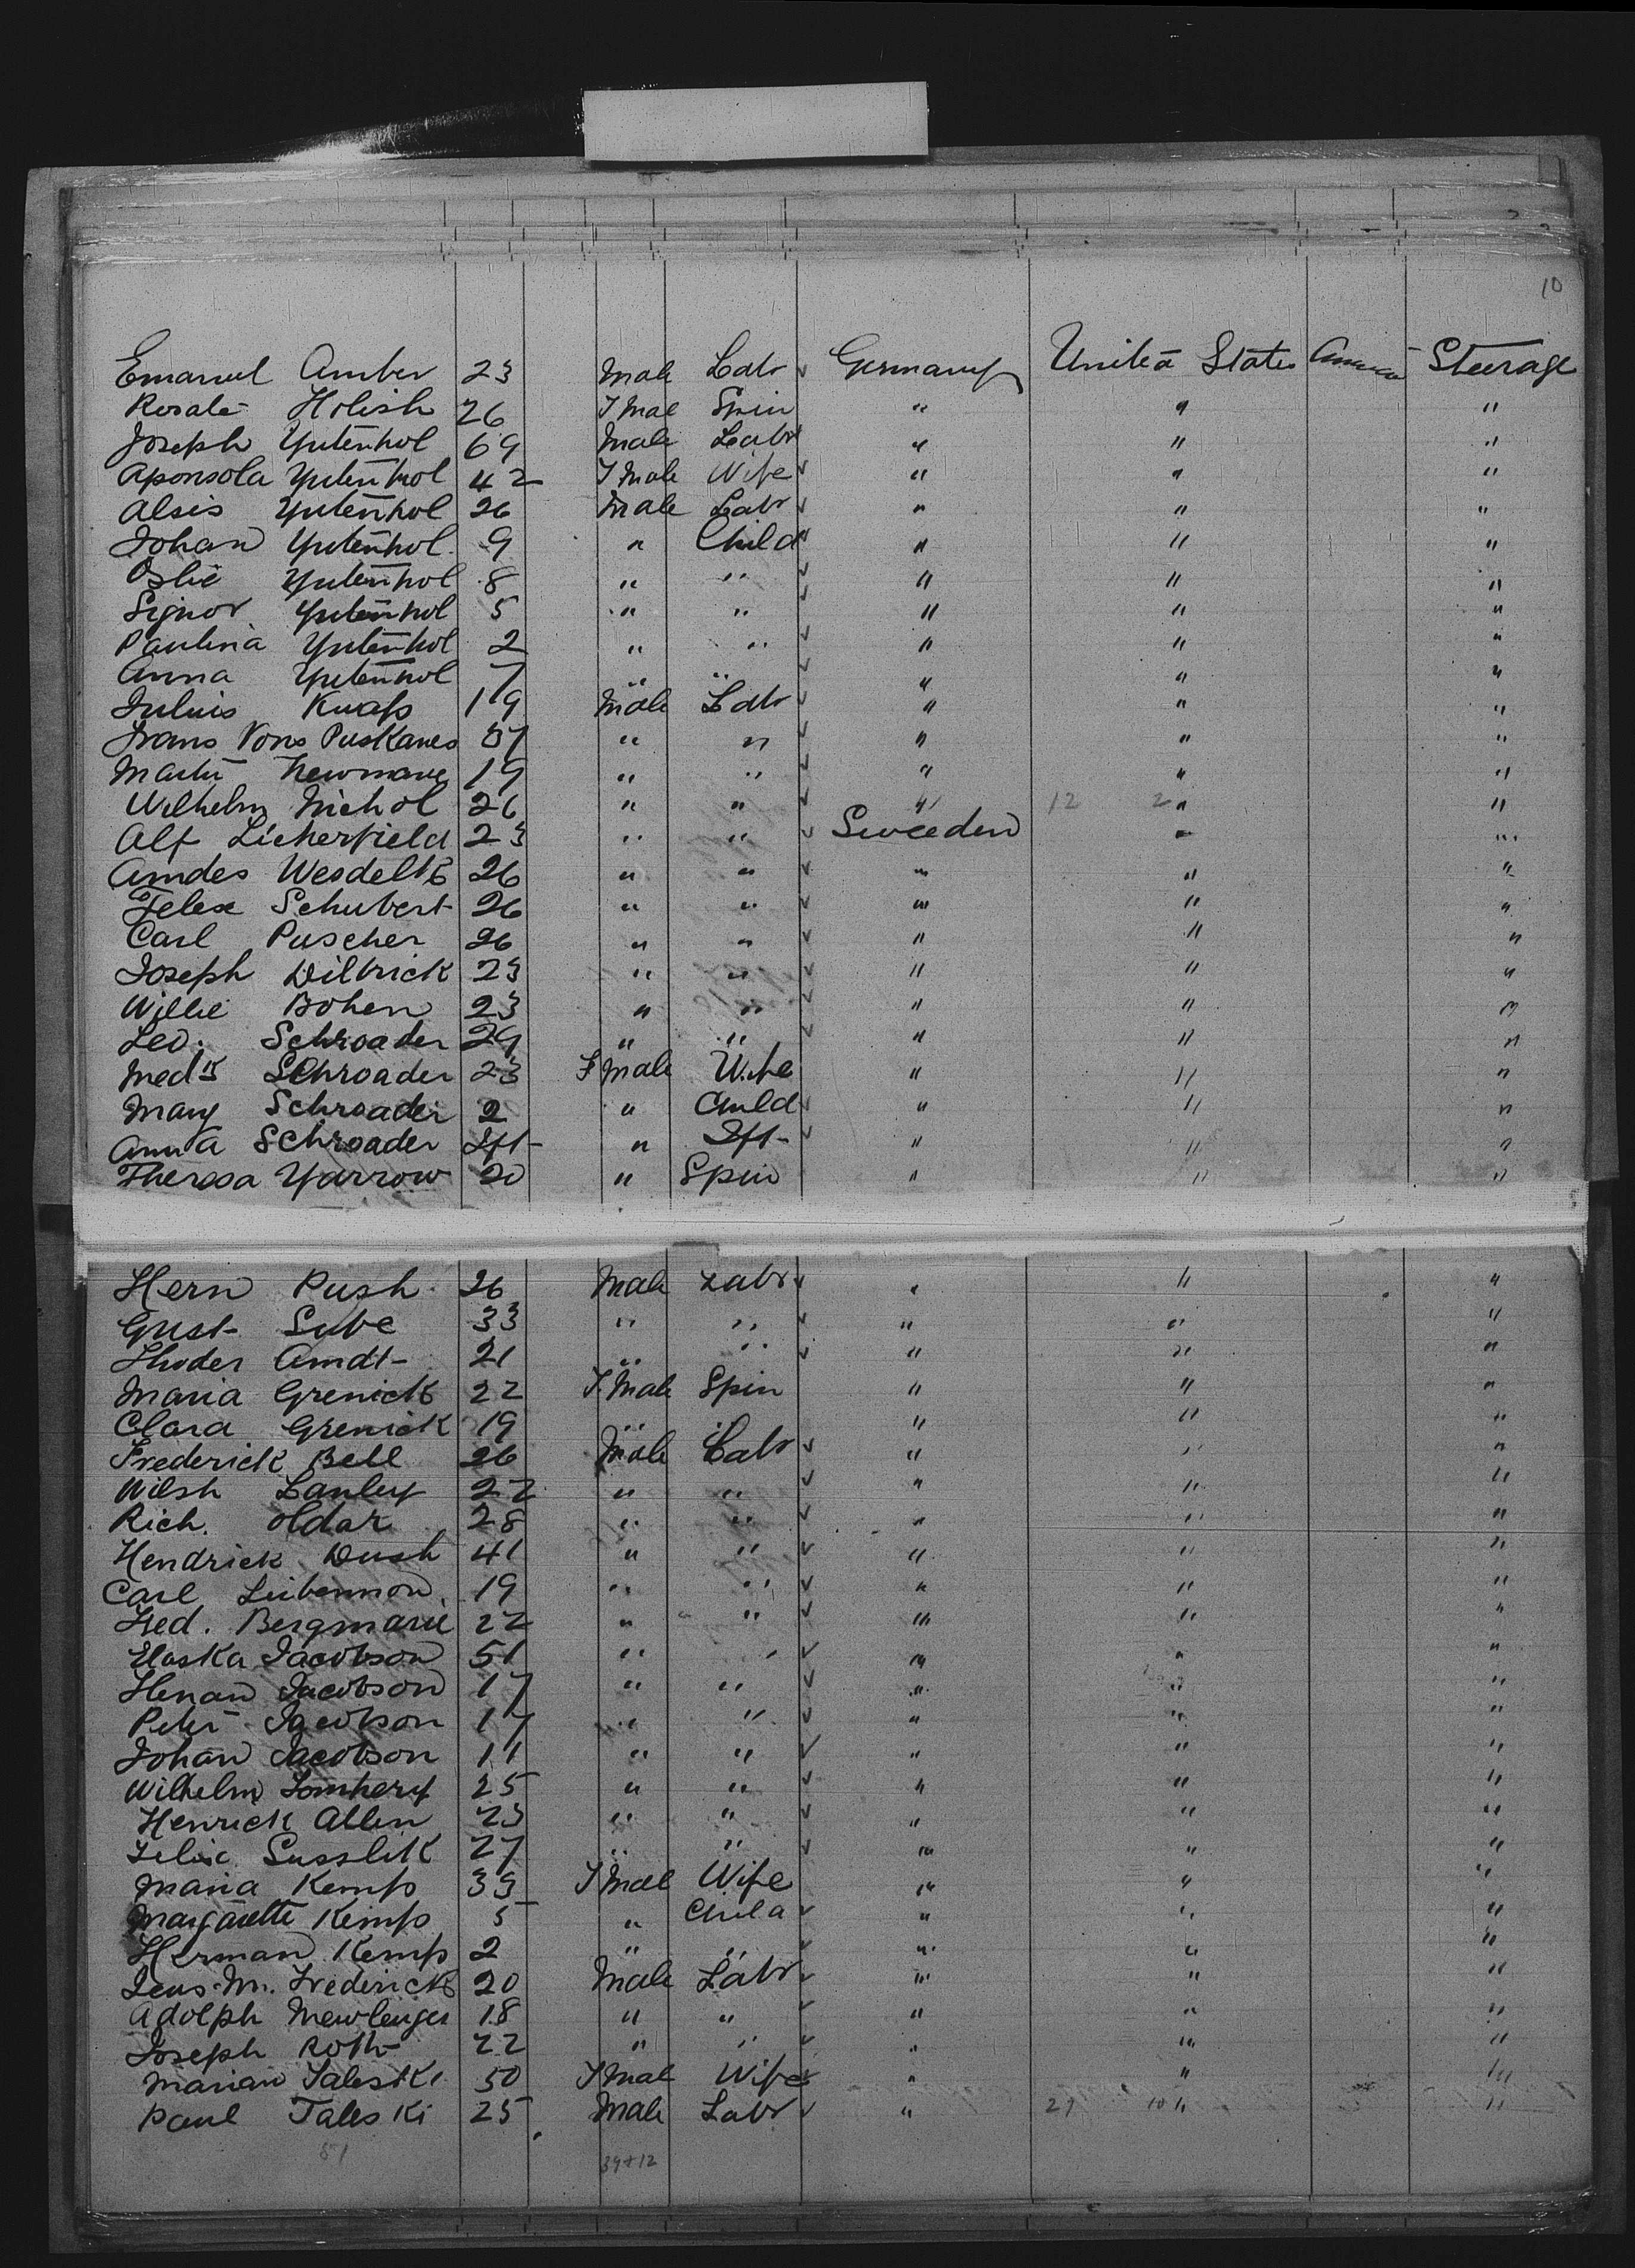 10
Emanuel Amber 23 Male Labr Germany United States America Steerage
Rosale Holish 26 F Mal Spin " " "
Joseph Yutenhol 69 Male Labr " " "
Aponsola Yutenhol 42 F Male Wife " " "
Alsis Yutenhol 26 Male Labr " " "
Johan Yutenhol 9 " Child " " "
Oslie Yutenhol 8 " " " " "
Signor Yutenhol 5 " " " " "
Paulina Yutenhol 2 " " " " "
Anna Yutenhol 7 " " " " "
Julius Knaps 19 Male Labr " " "
Frans Vons Puskanes 37 " " " " "
Martin Newmane 19 " " " " "
Wilhelm Nichol 26 " " " 12 2 " "
Alf Licherfield 23 " " Sweeden " "
Amdes Wesdelts 26 " " " " "
Felex Schubert 26 " " " " "
Carl Puscher 26 " " " " "
Joseph Diltrick 23 " " " " "
Willie Bohen 23 " " " " "
Leo. Schroader 29 " " " " "
Meds Schroader 23 F Male Wife " " "
Mary Schroader 2 " Child " " "
Anna Schroader Ift " Ift " " "
Theresa Yarrow 20 " Spin " " "
Hern Push 26 Male Labr " " "
Gust Sube 33 " " " " "
Thoder Amdt 21 " " " " "
Maria Grenick 22 F. Male Spin " " "
Clara Grenick 19 " " " " "
Frederick Bell 26 Male Labr " " "
Wilsh Lanley 22 " " " " "
Rich. Oldar 28 " " " " "
Hendrick Dush 41 " " " " "
Carl Liebennon 19 " " " " "
Fred. Bergmane 22 " " " " "
Elaska Jacobson 51 " " " " "
Henan Jacobson 17 " " " " "
Peter Jacobson 17 " " " " "
Johan Jacobson 11 " " " " "
Wilhelm Lomhery 25 " " " " "
Henrick Allen 23 " " " " "
Felix Susslik 27 " " " " "
Maria Kemp 39 F Mal Wife " " "
Margarette Kemp 5 " Child " " "
Herman Kemp 2 " " " " "
Jens M. Frederick 20 Male Labr " " "
Adolph Mewlenger 18 " " " " "
Joseph Roth 22 " " " " "
Marian Taleski 50 F Mal Wife " " "
Paul Taleski 25 Male Labr " 27 10 " "
51 39+12